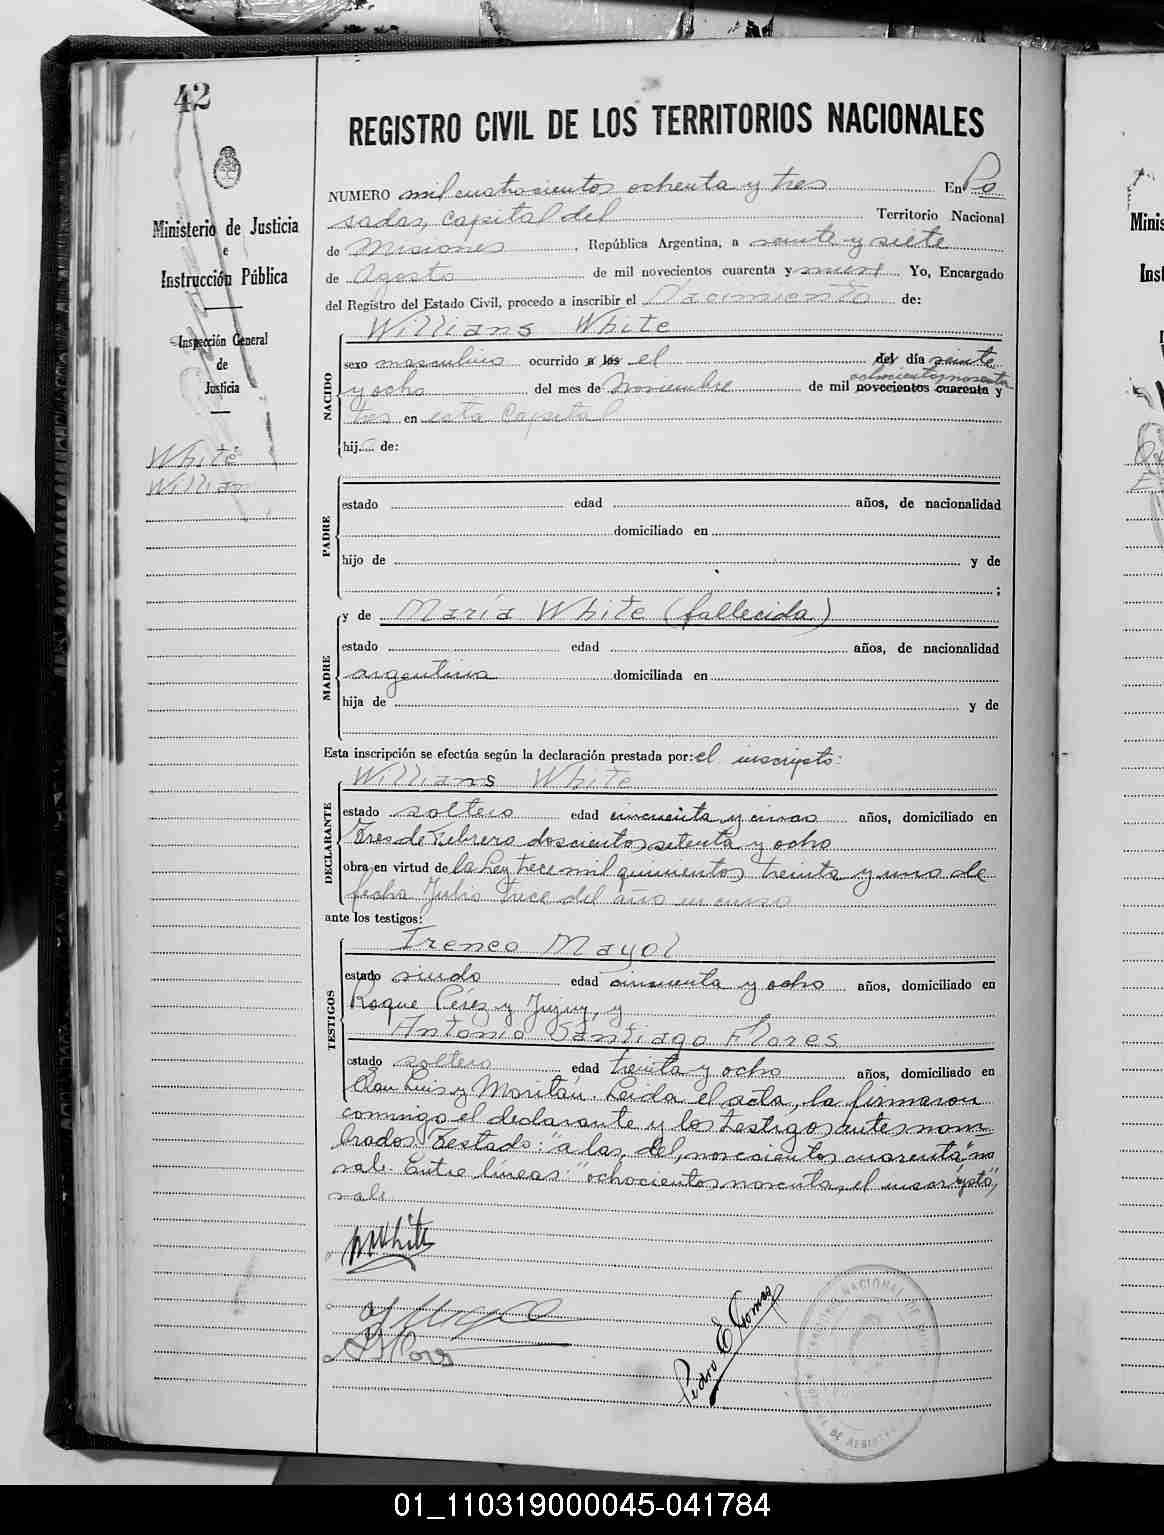 42
REGISTRO CIVIL DE LOS TERRITORIOS NACIONALES
Ministerio de Justicia
e
Instrucción Pública
Inspección General
de
Justicia
White
Willians
NUMERO mil cuatrocientos ochenta y tres En Po
sadas, capital del Territorio Nacional
de Misiones, República Argentina, a veinte y siete
de Agosto de mil novecientos cuarenta y nueve Yo, Encargado
del Registro del Estado Civil, procedo a inscribir el Nacimiento de:
Willians White
NACIDO
sexo masculino ocurrido a las el del día veinte
ochocientos noventa
y ocho del mes de Noviembre de mil novecientos cuarenta y
tres en esta Capital
hij.... de:
PADRE
estado edad años, de nacionalidad
domiciliado en
hijo de y de
;
y de María White (fallecida)
MADRE
estado edad años, de nacionalidad
argentina domiciliada en
hija de y de
Esta inscripción se efectúa según la declaración prestada por: el inscripto:
Willians White
DECLARANTE
estado soltero edad cincuenta y cinco años, domiciliado en
Tres de Febrero doscientos setenta y ocho
obra en virtud de la Ley trece mil quinientos treinta y uno de
fecha Julio trece del año en curso
ante los testigos:
Ireneo Mayol
TESTIGOS
estado viudo edad cincuenta y ocho años, domiciliado en
Roque Pérez y Jujuy, y
Antonio Santiago Flores
estado soltero edad treinta y ocho años, domiciliado en
San Luis y Moritán. Leida el acta, la firmaron
conmigo el declarante y los testigos antes nom
brados. Testado: "a las, del, novecientos cuarenta" no
vale. Entre líneas: "ochocientos noventa, el inscripto",
vale.
White
Pedro E Gomez
REGISTRO NACIONAL DE
01_110319000045-041784
Minis
Inst